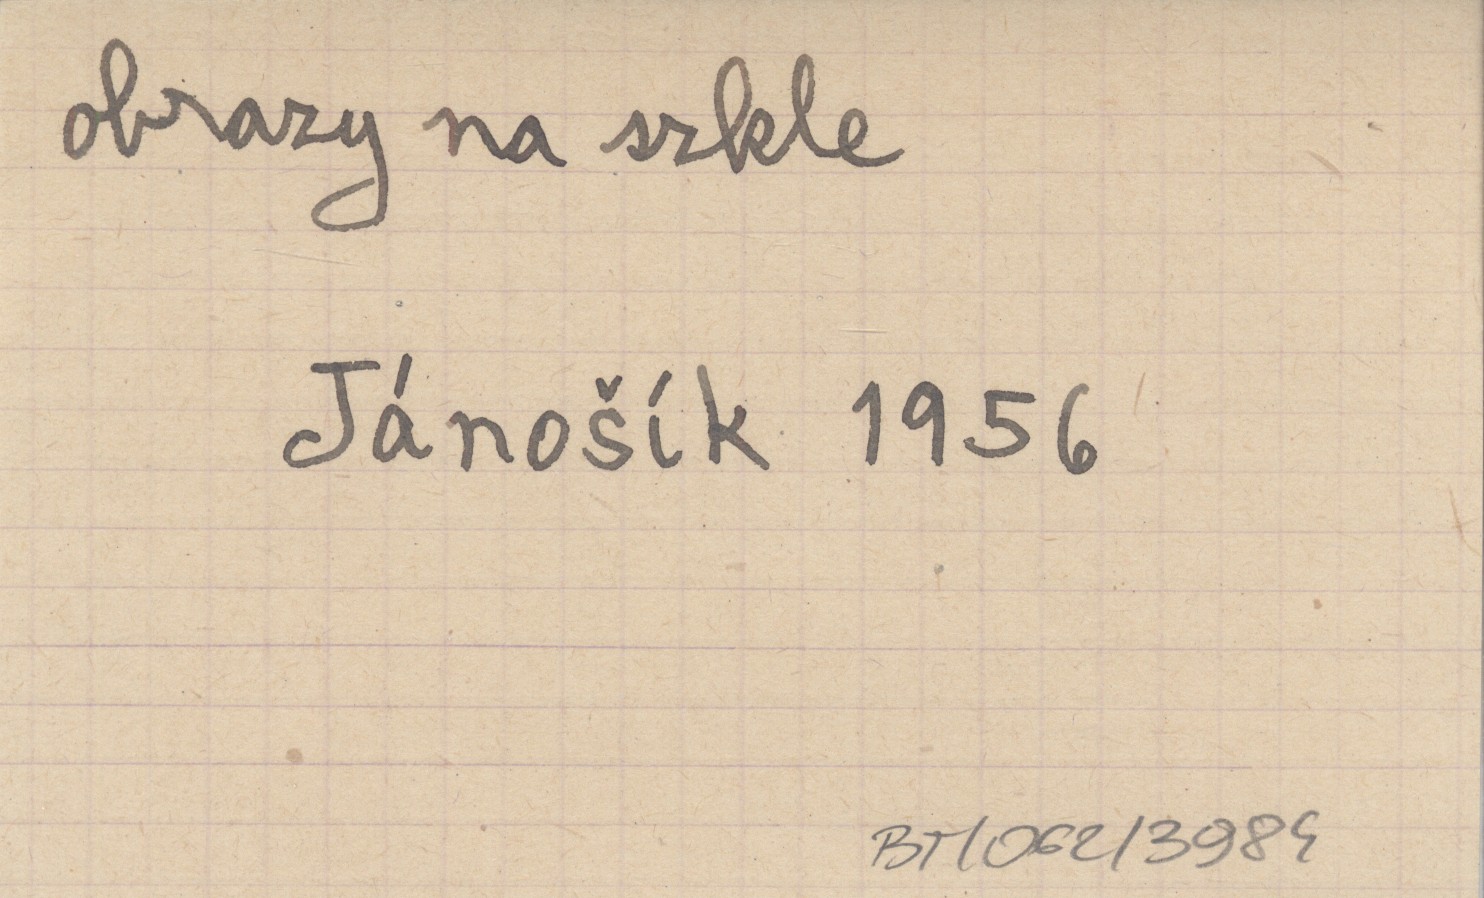 obrazy na szkle
Jánošík 1956
BT/062/3984